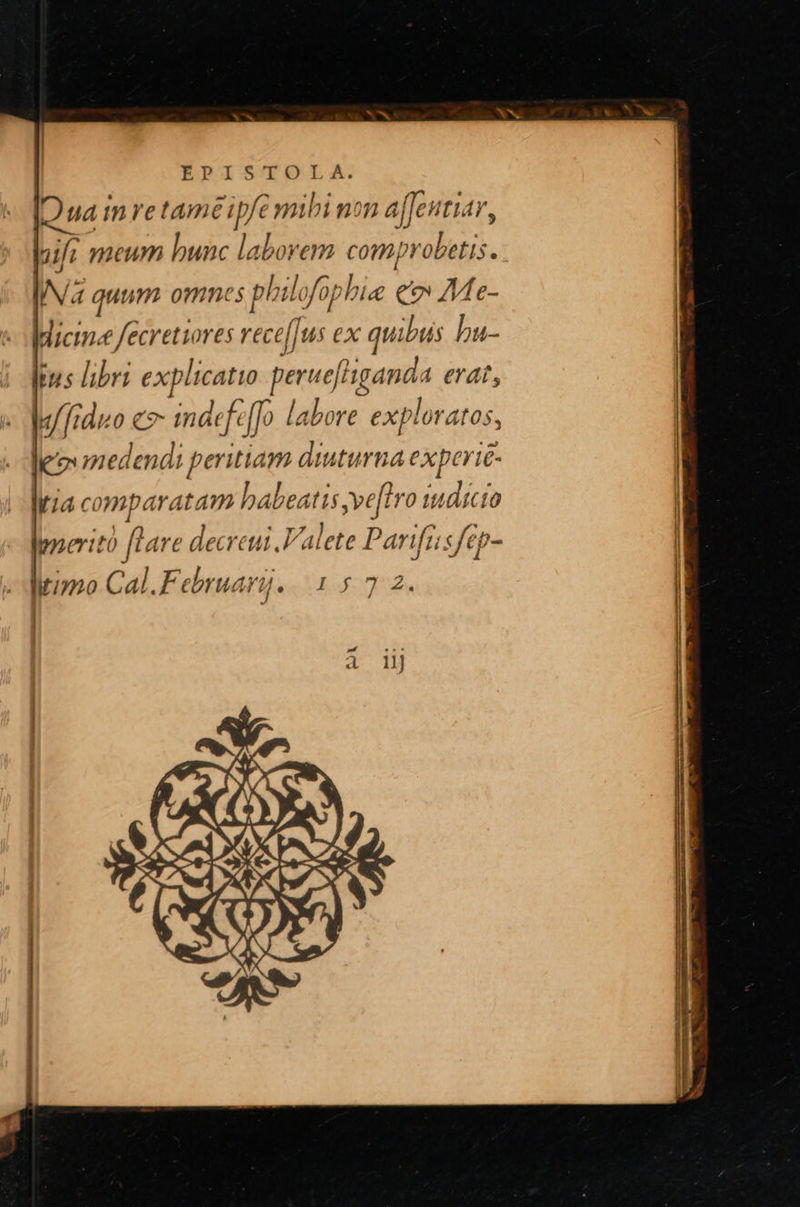 EPISTOLA.
Qua in re tamē ipſe mihi non aſſentiar,
niſi meum hunc laborem comprobetis.
Nā quum omnes philoſophiæ & Me-
dicinæ ſecretiores receſſus ex quibus hu-
ius libri explicatio peruestiganda erat,
aſſiduo & indefeſſo labore exploratos,
& medendi peritiam diuturna experiē-
tia comparatam habeatis, veſtro iudicio
meritò ſtare decreui. Valete Pariſiis ſep-
timo Cal. Februarij. 1572.
ā iij